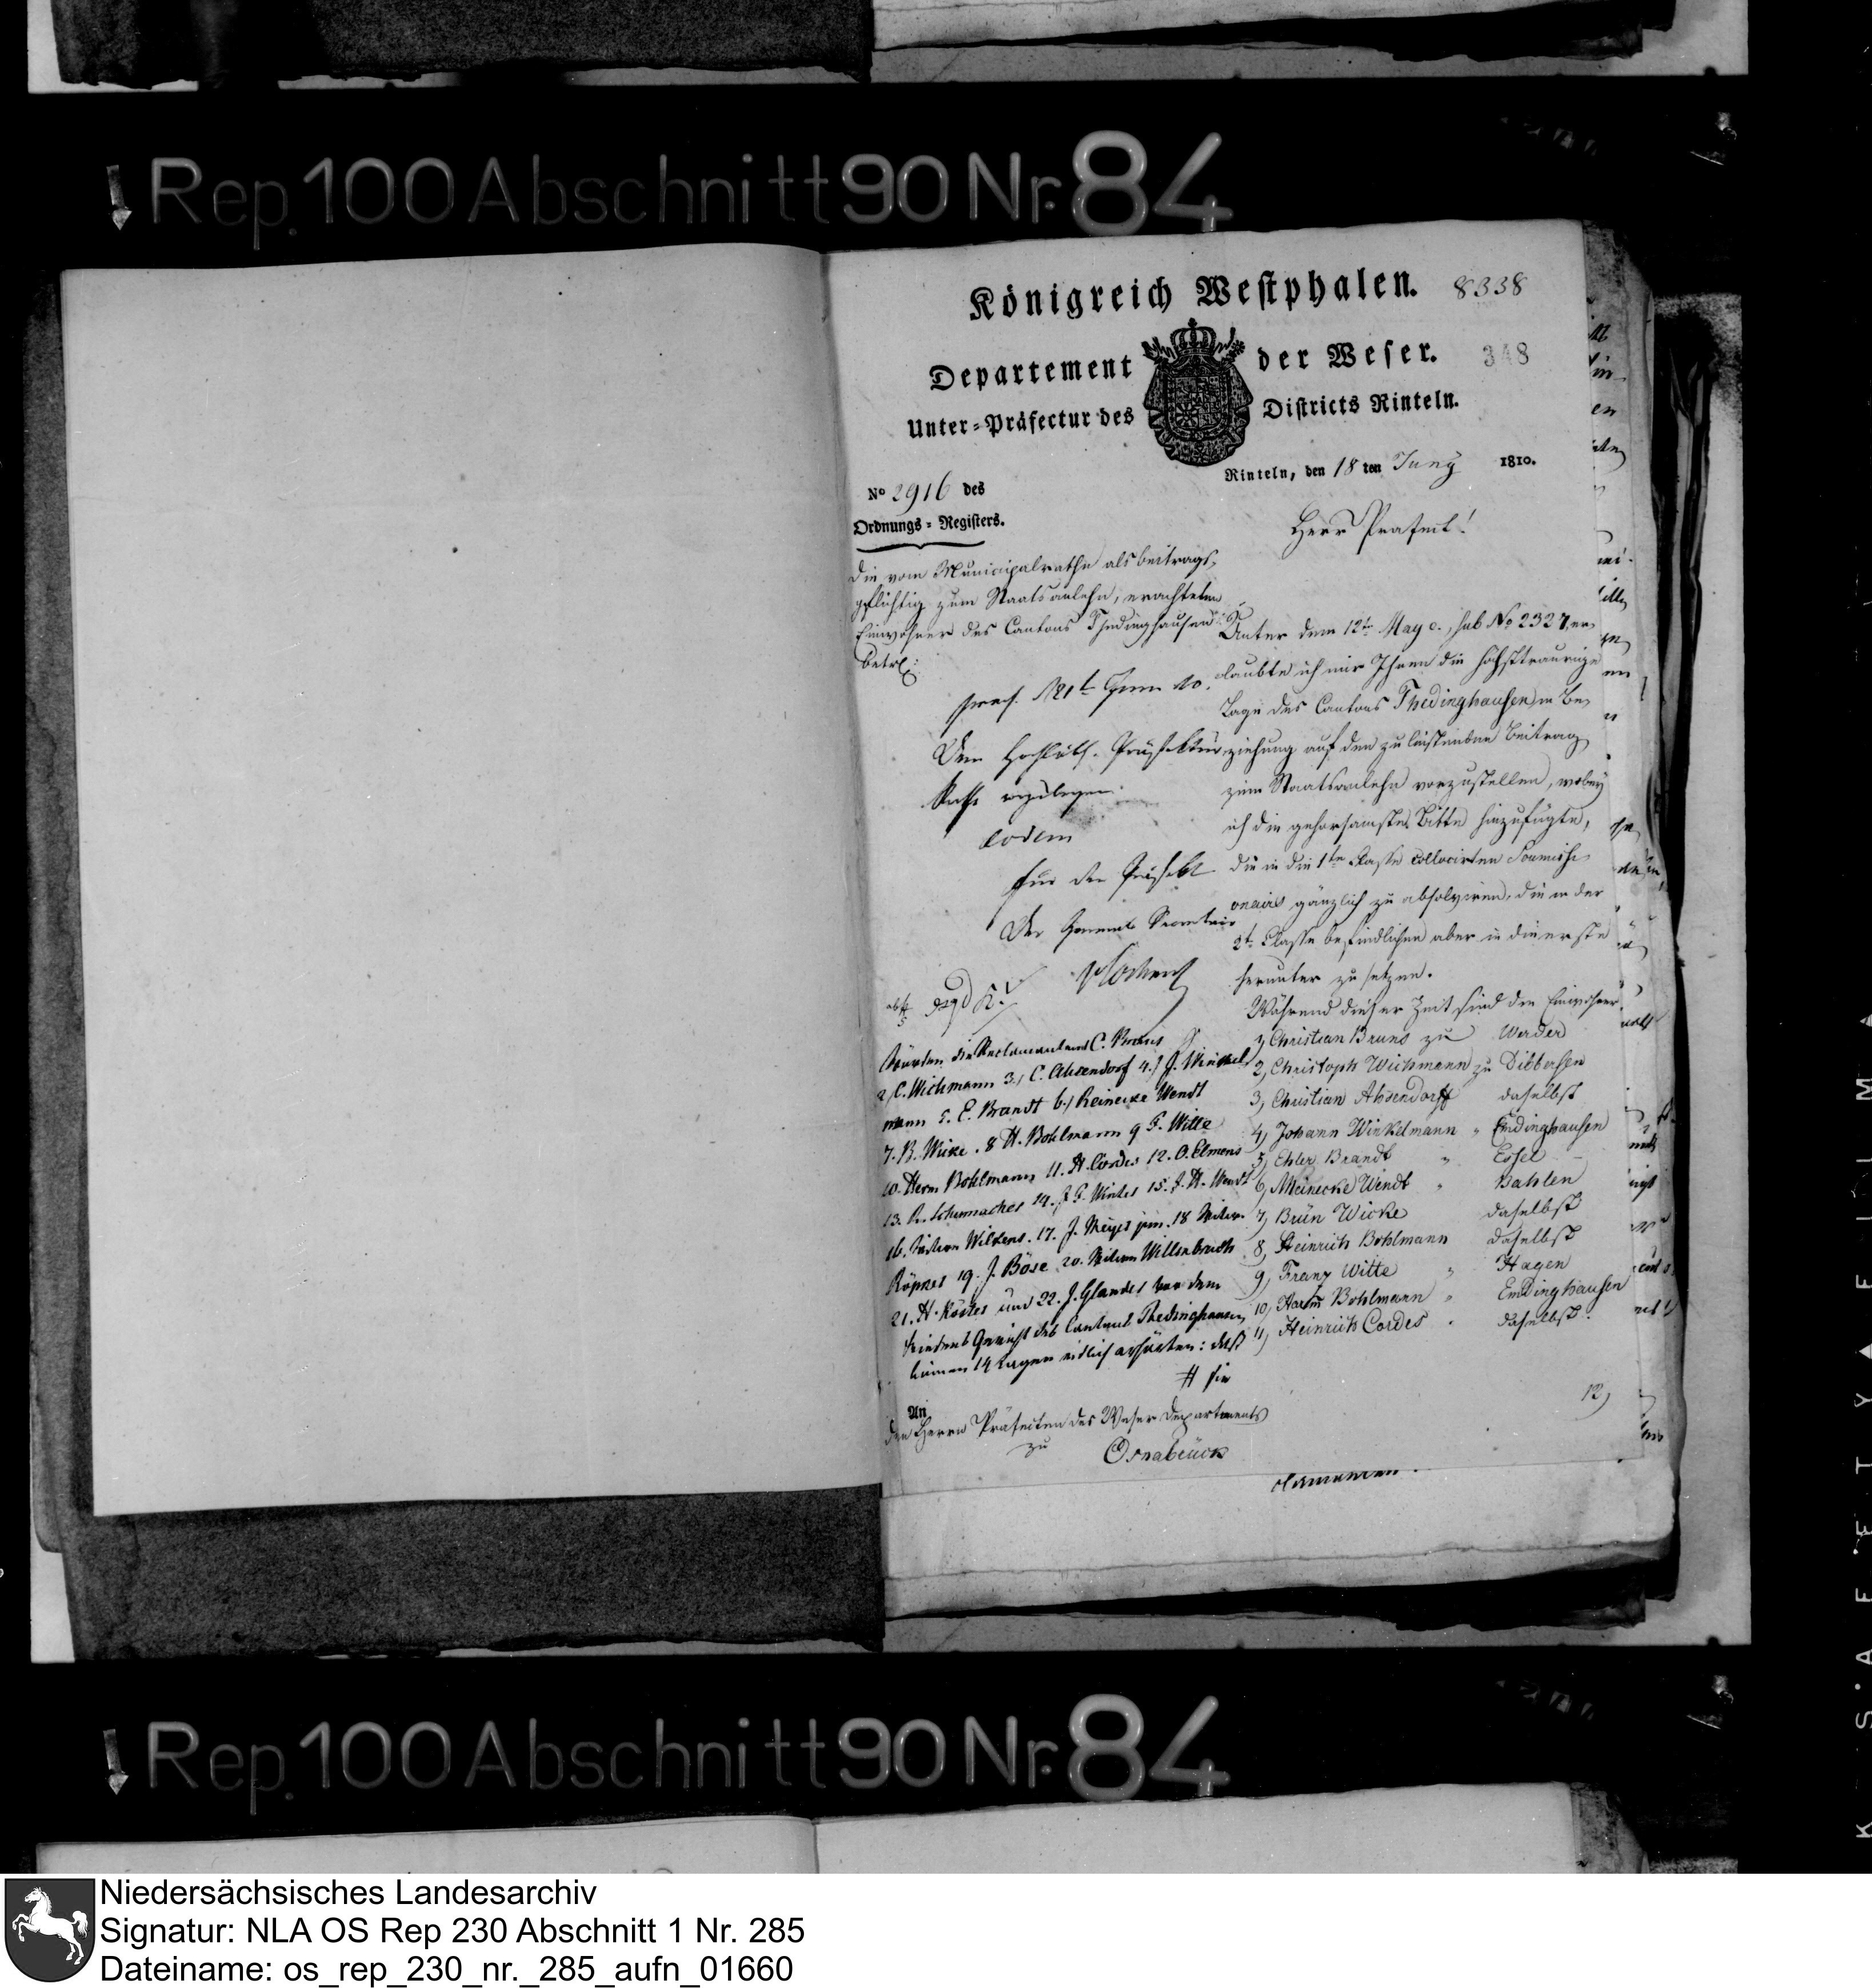 Rep. 100 Abschnitt 90 Nr. 84
Königreich Westphalen. 8338
Departement der Weser. 348
Unter-Präfectur des Districts Rinteln.
Rinteln, den 18 ten Juny 1810.
No 2916 des
Ordnungs-Registers.
Herr Präfect!
Die vom Municipalrathe als beitrags-
pflichtig zum Staatsanlehn, erachteten
Einwohner des Cantons Thedinghausen
betr:
praes. 21t Juni 10.
Dem Hochlöbl. Präfektur
Rathe vorzulegen.
eodem
für den Präfekt
Der General Secretair
Unter dem 12t May c., sub No 2327, er-
laubte ich mir Ihnen die höchsttraurige
Lage des Cantons Thedinghausen in Be-
ziehung auf den zu leistenden Beitrag
zum Staatsanlehn vorzustellen, wobey
ich die gehorsamste Bitte hinzufügte,
die in die 1te Classe collocirten Soumissi-
onairs gänzlich zu absolviren, die in der
2t Classe befindlichen aber in die erste
herunter zu setzen.
Während dieser Zeit sind die Einwohner
1, Christian Bruns zu Werder
2, Christoph Wichmann zu Dibbersen
3, Christian Ahsendorff daselbst
4, Johann Winkelmann " Emdinghausen
5, Ehler Brandt " Essel
6, Meinecke Wendt " Bahlen
7, Brün Wicke daselbst
8, Heinrich Bohlmann daselbst
9, Franz Witte " Hagen
10, Harm Bohlmann " Emdinghausen
11, Heinrich Cordes " daselbst.
12,
Würden die Reclamanten C. Bruns
2, C. Wichmann 3., C. Ahsendorf 4.) J. Winkel
mann 5. E. Brandt 6.) Reinecke Wendt
7. B. Wicke. 8 H. Bohlmann 9 F. Witte
10. Herm Bohlmann 11. H. Cordes 12. O. Elmers
13. A. Schumacher 14. J F. Winter 15. J. H. Wendt
16. Wilkens. 17. J. Meyer jun. 18
Röpner 19. J. Böse 20. Willenbruch
21. H. Köster und 22. J. Glander vor dem
Friedens Gericht des Cantons Thedinghausen
binnen 14 Tagen eidlich erhärten: daß
# sie
An
den Herrn Präfecten des Weser Departements
zu Osnabrück
Rep. 100 Abschnitt 90 Nr. 84
Niedersächsisches Landesarchiv
Signatur: NLA OS Rep 230 Abschnitt 1 Nr. 285
Dateiname: os_rep_230_nr._285_aufn_01660